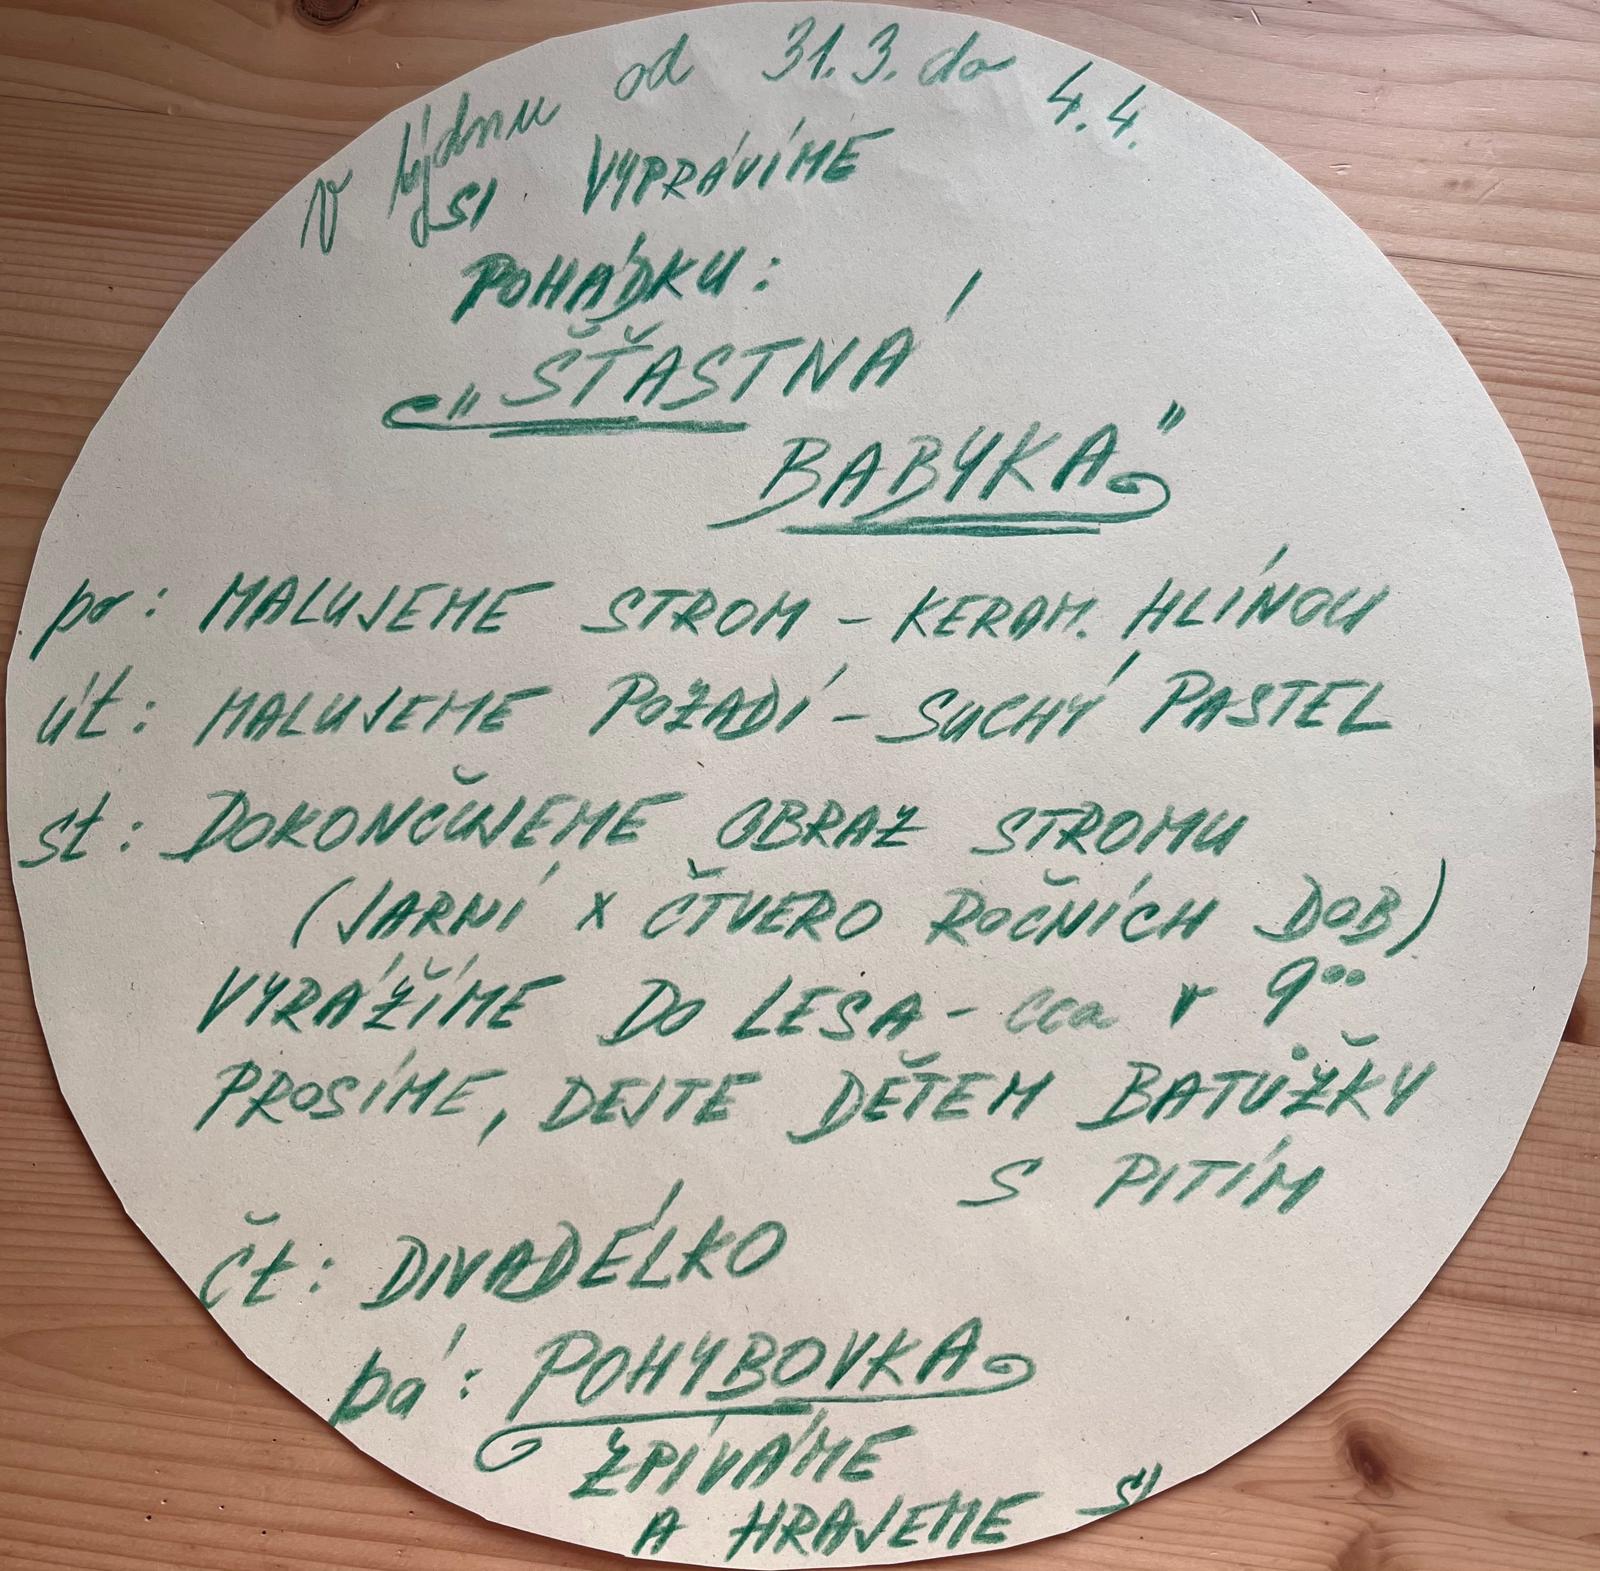 v týdnu od 31.3. do 4.4.
SI VYPRÁVÍME
POHÁDKU:
„ŠŤASTNÁ
BABYKA"
po: MALUJEME STROM - KERAM. HLÍNOU
út: MALUJEME POZADÍ - SUCHÝ PASTEL
st: DOKONČUJEME OBRAZ STROMU
(JARNÍ X ČTVERO ROČNÍCH DOB)
VYRÁŽÍME DO LESA - cca v 9⁰⁰
PROSÍME, DEJTE DĚTEM BATŮŽKY
S PITÍM
čt: DIVADÉLKO
pá: POHYBOVKA
ZPÍVÁME
A HRAJEME SI